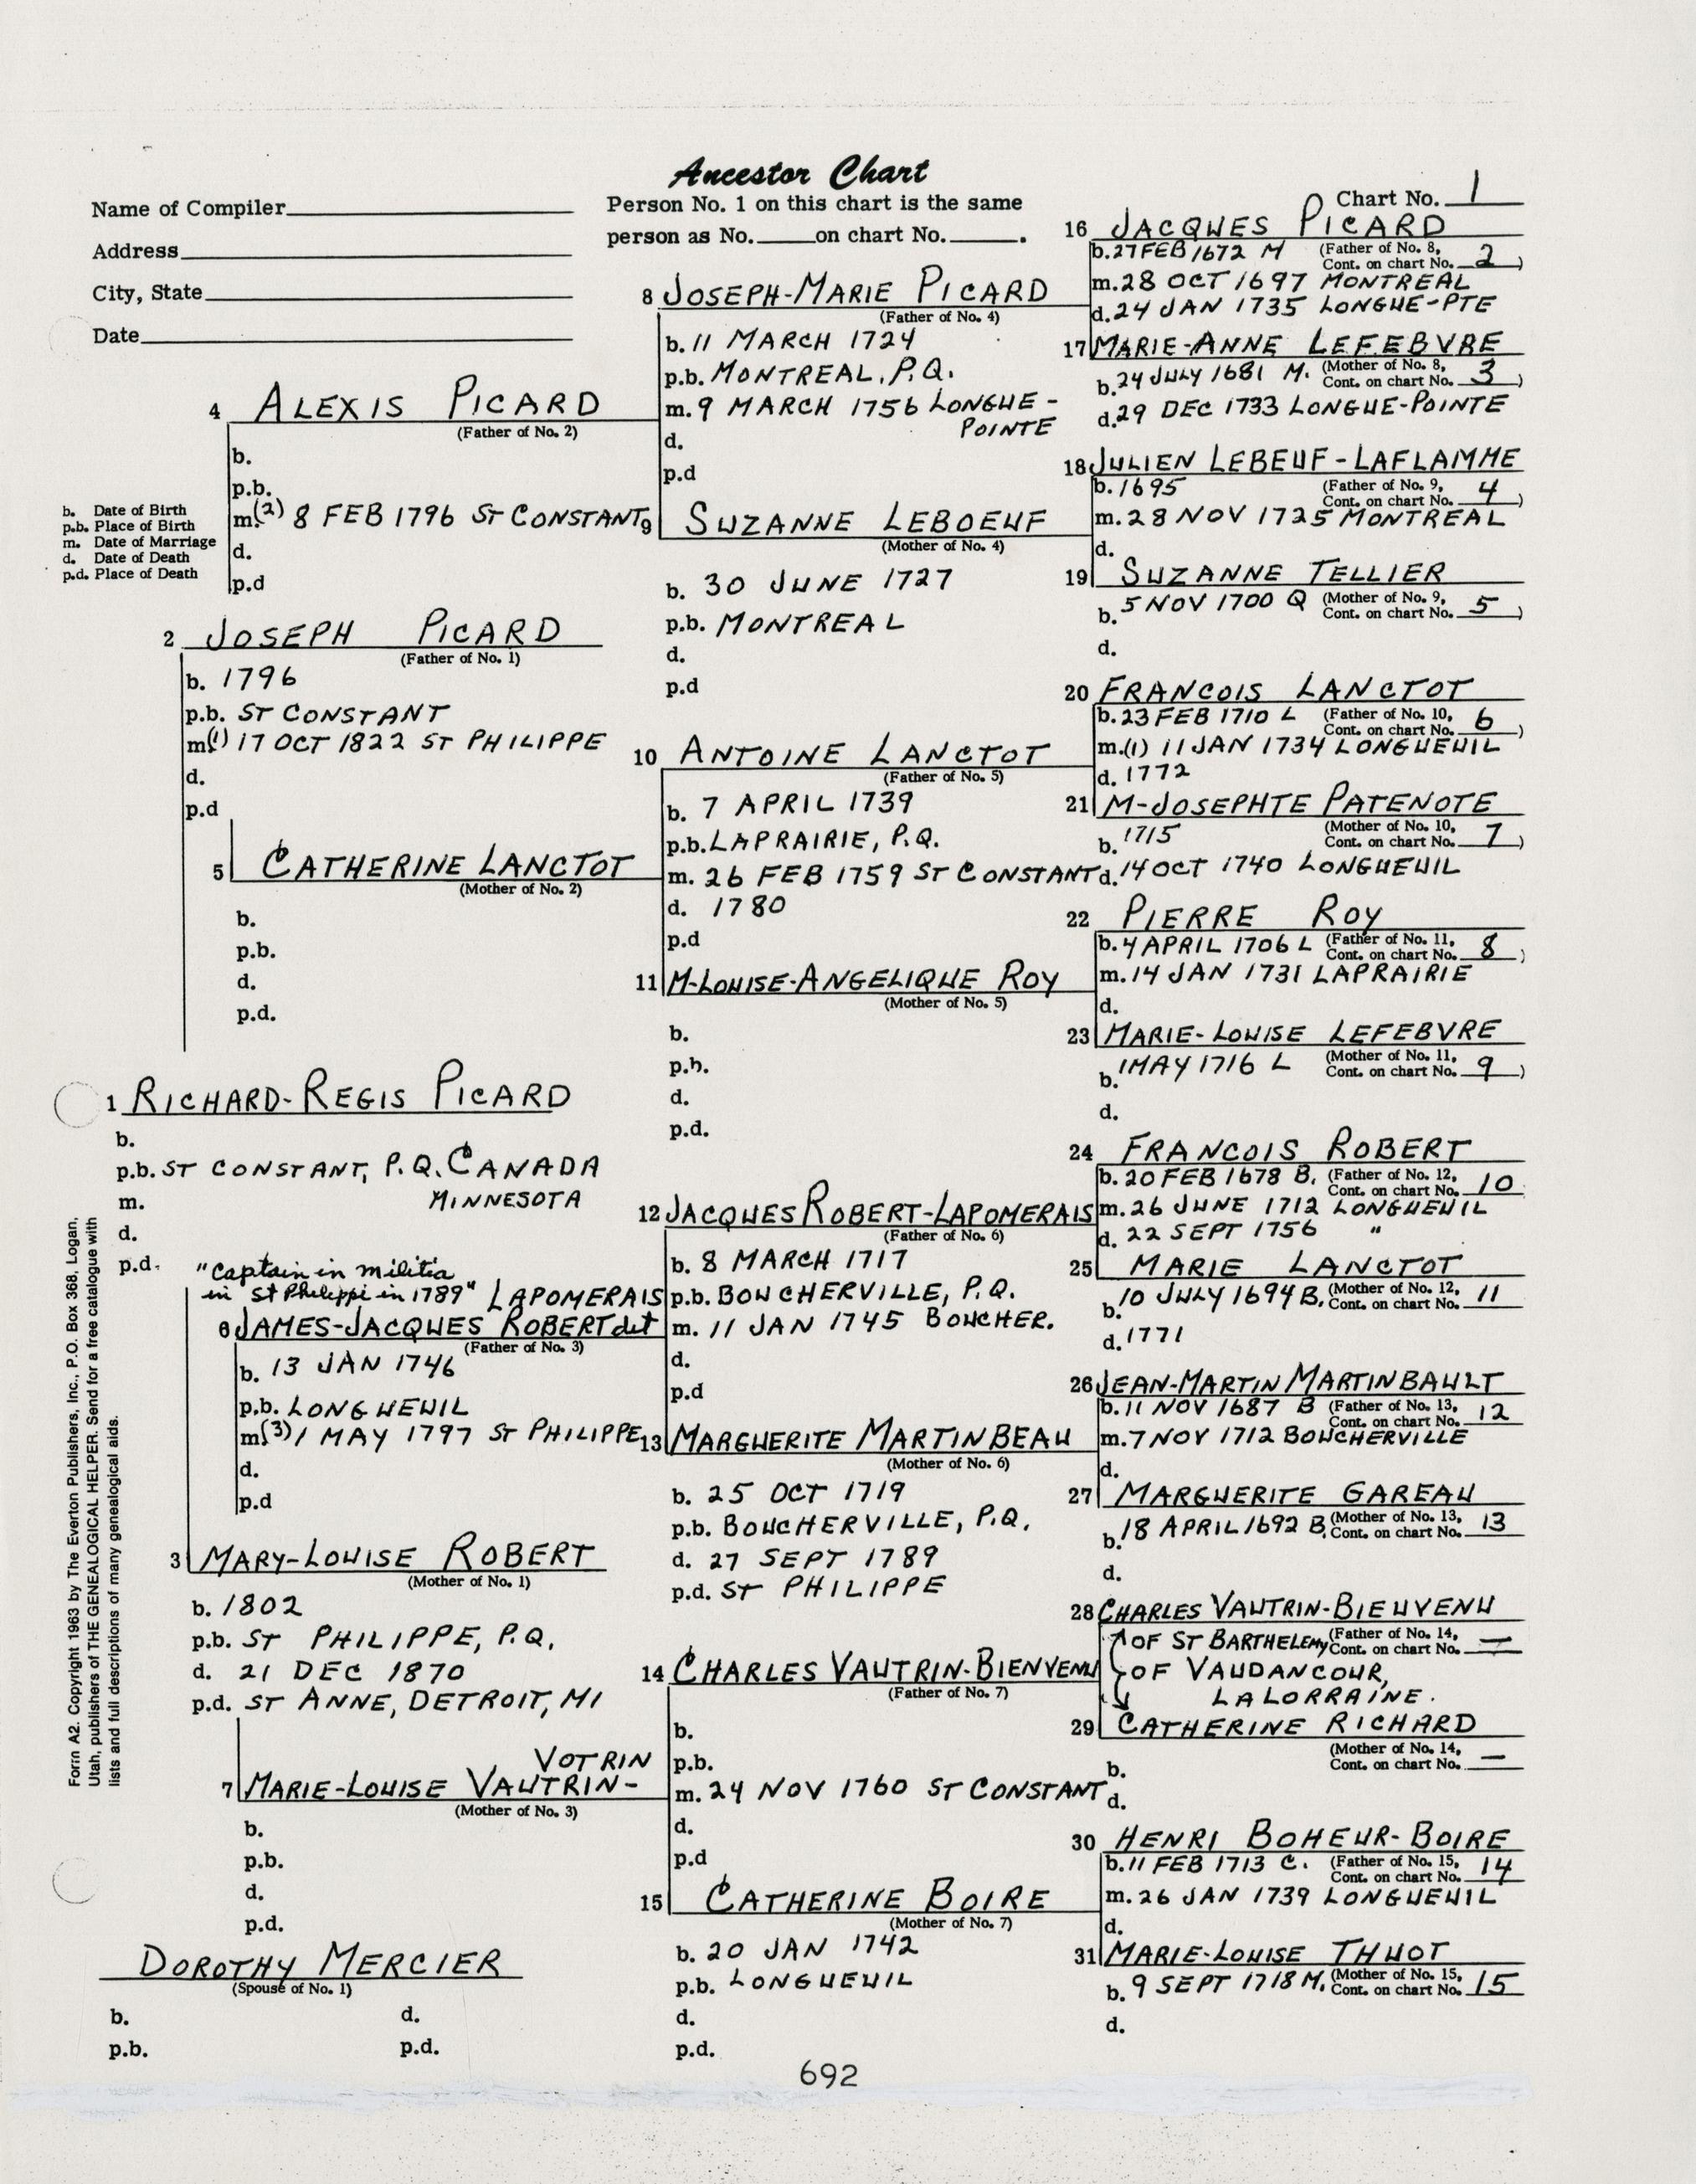 Ancestor Chart
Name of Compiler
Address
City, State
Date
Person No. 1 on this chart is the same
person as No. on chart No. .
Chart No. 1
b. Date of Birth
p.b. Place of Birth
m. Date of Marriage
d. Date of Death
p.d. Place of Death
4 ALEXIS PICARD
(Father of No. 2)
b.
p.b.
m.(2) 8 FEB 1796 ST CONSTANT
d.
p.d
2 JOSEPH PICARD
(Father of No. 1)
b. 1796
p.b. ST CONSTANT
m(1) 17 OCT 1822 ST PHILIPPE
d.
p.d
5 CATHERINE LANCTOT
(Mother of No. 2)
b.
p.b.
d.
p.d.
1 RICHARD-REGIS PICARD
b.
p.b. ST CONSTANT, P.Q. CANADA
m. MINNESOTA
d.
p.d.
"Captain in militia
in St Philippi in 1789" LAPOMERAIS
6 JAMES-JACQUES ROBERT dit
(Father of No. 3)
b. 13 JAN 1746
p.b. LONGUEUIL
m(3) 1 MAY 1797 ST PHILIPPE
d.
p.d
3 MARY-LOUISE ROBERT
(Mother of No. 1)
b. 1802
p.b. ST PHILIPPE, P.Q.
d. 21 DEC 1870
p.d. ST ANNE, DETROIT, MI
VOTRIN
7 MARIE-LOUISE VAUTRIN-
(Mother of No. 3)
b.
p.b.
d.
p.d.
DOROTHY MERCIER
(Spouse of No. 1)
b. d.
p.b. p.d.
8 JOSEPH-MARIE PICARD
(Father of No. 4)
b. 11 MARCH 1724
p.b. MONTREAL, P.Q.
m. 9 MARCH 1756 LONGUE-
POINTE
d.
p.d
9 SUZANNE LEBOEUF
(Mother of No. 4)
b. 30 JUNE 1727
p.b. MONTREAL
d.
p.d
10 ANTOINE LANCTOT
(Father of No. 5)
b. 7 APRIL 1739
p.b. LAPRAIRIE, P.Q.
m. 26 FEB 1759 ST CONSTANT
d. 1780
p.d
11 M-LOUISE-ANGELIQUE ROY
(Mother of No. 5)
b.
p.b.
d.
p.d.
12 JACQUES ROBERT-LAPOMERAIS
(Father of No. 6)
b. 8 MARCH 1717
p.b. BOUCHERVILLE, P.Q.
m. 11 JAN 1745 BOUCHER.
d.
p.d
13 MARGUERITE MARTINBEAU
(Mother of No. 6)
b. 25 OCT 1719
p.b. BOUCHERVILLE, P.Q.
d. 27 SEPT 1789
p.d. ST PHILIPPE
14 CHARLES VAUTRIN-BIENVENU
(Father of No. 7)
b.
p.b.
m. 24 NOV 1760 ST CONSTANT
d.
p.d
15 CATHERINE BOIRE
(Mother of No. 7)
b. 20 JAN 1742
p.b. LONGUEUIL
d.
p.d.
16 JACQUES PICARD
b. 27 FEB 1672 M (Father of No. 8,
Cont. on chart No. 2)
m. 28 OCT 1697 MONTREAL
d. 24 JAN 1735 LONGUE-PTE
17 MARIE-ANNE LEFEBVRE
b. 24 JULY 1681 M. (Mother of No. 8,
Cont. on chart No. 3)
d. 29 DEC 1733 LONGUE-POINTE
18 JULIEN LEBEUF-LAFLAMME
b. 1695 (Father of No. 9,
Cont. on chart No. 4)
m. 28 NOV 1725 MONTREAL
d.
19 SUZANNE TELLIER
b. 5 NOV 1700 Q (Mother of No. 9,
Cont. on chart No. 5)
d.
20 FRANCOIS LANCTOT
b. 23 FEB 1710 L (Father of No. 10,
Cont. on chart No. 6)
m.(1) 11 JAN 1734 LONGUEUIL
d. 1772
21 M-JOSEPHTE PATENOTE
b. 1715 (Mother of No. 10,
Cont. on chart No. 7)
d. 14 OCT 1740 LONGUEUIL
22 PIERRE ROY
b. 4 APRIL 1706 L (Father of No. 11,
Cont. on chart No. 8)
m. 14 JAN 1731 LAPRAIRIE
d.
23 MARIE-LOUISE LEFEBVRE
b. 1 MAY 1716 L (Mother of No. 11,
Cont. on chart No. 9)
d.
24 FRANCOIS ROBERT
b. 20 FEB 1678 B. (Father of No. 12,
Cont. on chart No. 10
m. 26 JUNE 1712 LONGUEUIL
d. 22 SEPT 1756 "
25 MARIE LANCTOT
b. 10 JULY 1694 B. (Mother of No. 12,
Cont. on chart No. 11
d. 1771
26 JEAN-MARTIN MARTINBAULT
b. 11 NOV 1687 B (Father of No. 13,
Cont. on chart No. 12
m. 7 NOV 1712 BOUCHERVILLE
d.
27 MARGUERITE GAREAU
b. 18 APRIL 1692 B. (Mother of No. 13,
Cont. on chart No. 13
d.
28 CHARLES VAUTRIN-BIEUVENU
OF ST BARTHELEMY (Father of No. 14,
Cont. on chart No. —
OF VAUDANCOUR,
LA LORRAINE.
29 CATHERINE RICHARD
(Mother of No. 14,
b. Cont. on chart No. —
d.
30 HENRI BOHEUR-BOIRE
b. 11 FEB 1713 C. (Father of No. 15,
Cont. on chart No. 14
m. 26 JAN 1739 LONGUEUIL
d.
31 MARIE-LOUISE THUOT
b. 9 SEPT 1718 M. (Mother of No. 15,
Cont. on chart No. 15
d.
Form A2. Copyright 1963 by The Everton Publishers, Inc., P.O. Box 368, Logan,
Utah, publishers of THE GENEALOGICAL HELPER. Send for a free catalogue with
lists and full descriptions of many genealogical aids.
692